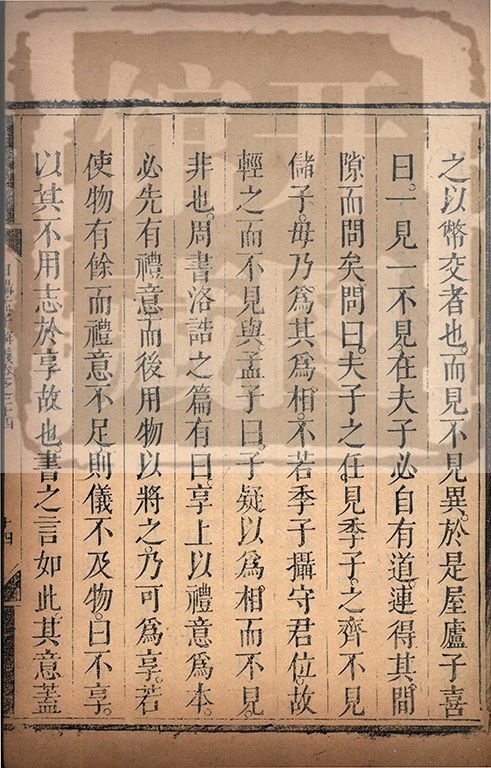 之以幣交者也。而見不見異。於是屋廬子喜
曰。一見一不見。在夫子必自有道。連得其間
隙而問矣。問曰。夫子之任。見季子。之齊不見
儲子。毋乃爲其爲相。不若季子攝守君位。故
輕之而不見與。孟子曰。子疑以爲相而不見。
非也。周書洛誥之篇有曰。享上以禮意爲本。
必先有禮意而後用物以將之。乃可爲享。若
使物有餘而禮意不足。則儀不及物。曰不享。
以其不用志於享故也。書之言如此。其意蓋
十四